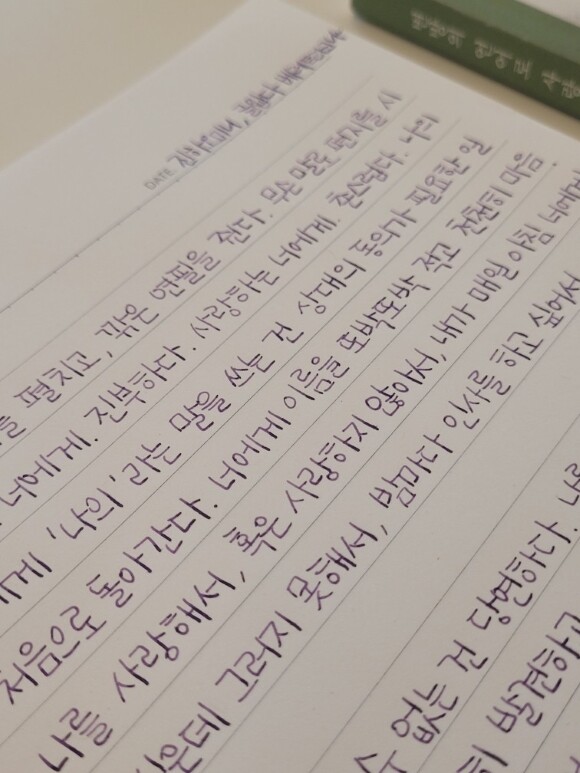 변방의 언어로 사랑
DATE.
를 펼치고, 깎은 연필을 쥔다. 무슨 말로 편지를 시
너에게. 진부하다. 사랑하는 너에게. 촌스럽다. 나의
에게 '나의' 라는 말을 쓰는 건 상대의 동의가 필요한 일
처음으로 돌아간다. 너에게 이름을 또박또박 적고 천천히 마음.
나를 사랑해서, 혹은 사랑하지 않아서, 내가 매일 아침 너에게
운데 그러지 못해서, 밤마다 인사를 하고 싶어서
수 없는 건 당연하다.
히 발견하고